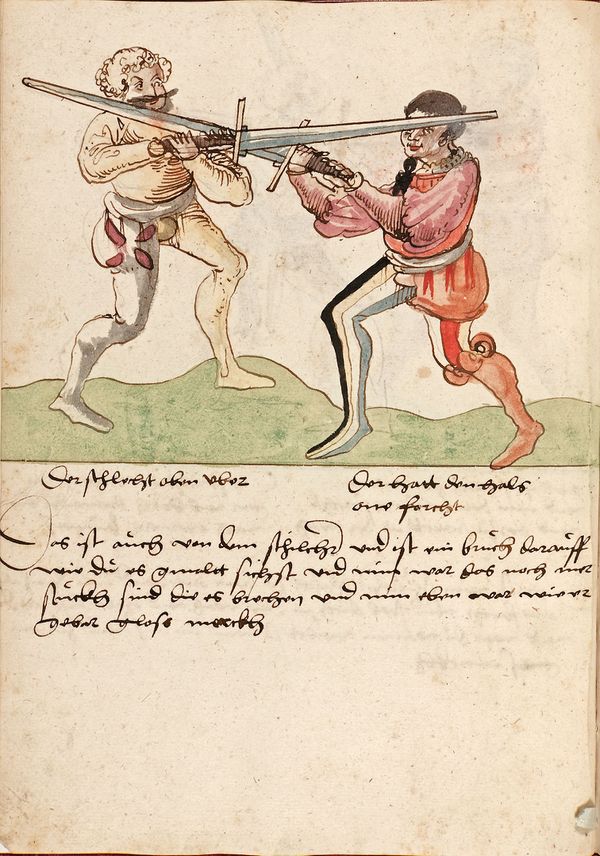 Der schlecht oben vber
Der hatt den hals
one forcht
Das ist auch von dem schilchr vnd ist ein bruch darauff
wie du es gmalt sichst vnd nim war das noch mer
stuckh sind die es brechen vnd nim eben war wie er
gebar glose merckh